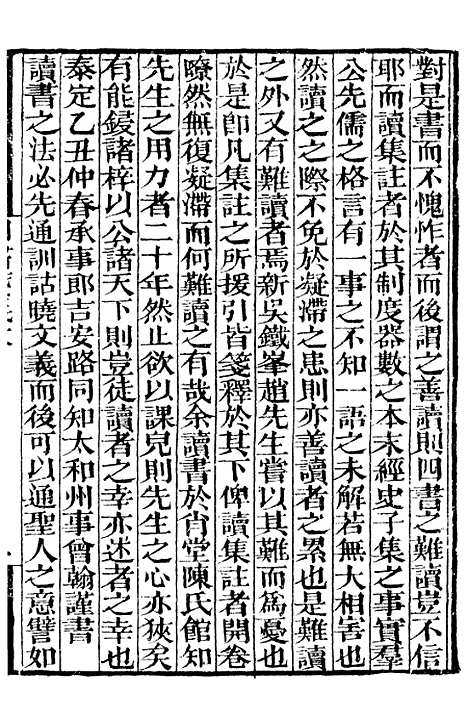 對是書而不愧怍者而後謂之善讀則四書之難讀豈不信
耶而讀集註者於其制度器數之本末經史子集之事實羣
公先儒之格言有一事之不知一語之未解若無大相害也
然讀之之際不免於疑滯之患則亦善讀者之累也是難讀
之外又有難讀者焉新吳鐵峯趙先生嘗以其難而為憂也
於是卽凡集註之所援引皆箋釋於其下俾讀集註者開卷
瞭然無復凝滯而何難讀之有哉余讀書於肖堂陳氏館知
先生之用力者二十年然止欲以課兒則先生之心亦狹矣
有能鋟諸梓以公諸天下則豈徒讀者之幸亦述者之幸也
泰定乙丑仲春承事郎吉安路同知太和州事曾翰謹書
讀書之法必先通訓詁曉文義而後可以通聖人之意譬如